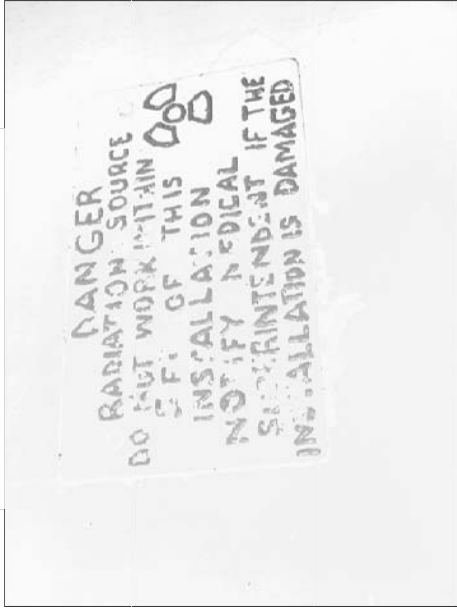 DANGER
RADIATION SOURCE
DO NOT WORK WITHIN
FT OF THIS
INSTALLATION
NOTIFY MEDICAL
SUPERINTENDENT IF THE
INSTALLATION IS DAMAGED